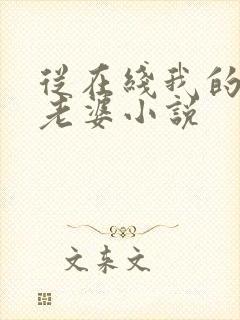 從在綫我的
老婆小説
文東文